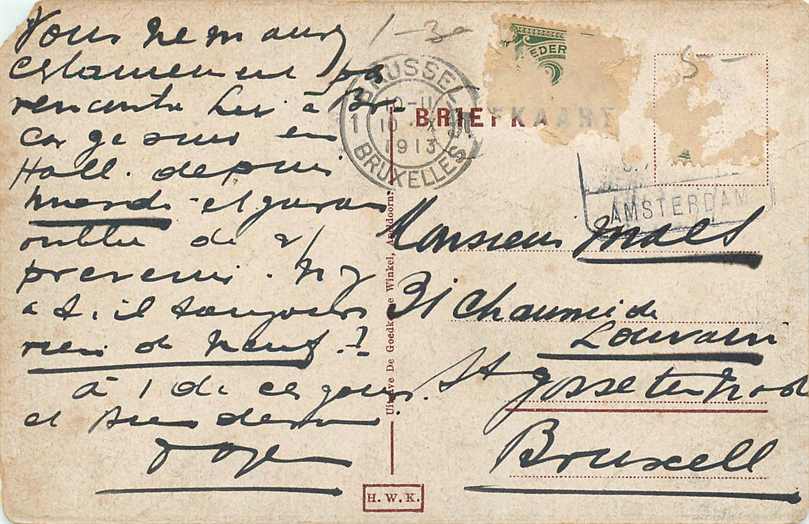 Vous ne m'aurez
certainement pas
rencontré hier à Br-
car je suis en
Holl. depuis
mardi - et j'avais
oublié de v/
prévenir. N'y
a t. il toujours
rien de neuf.?
à 1 de ces jours
et bien
1-30
5-
BRUSSEL
1913
BRUXELLES
BRIEFKAART
NEDER
AMSTERDAM
Monsieur Maes
31 Chaussée de
Louvain
St Josse ten Noode
Bruxell
Uitgave De Goedkoope Winkel, Apeldoorn
H.W.K.